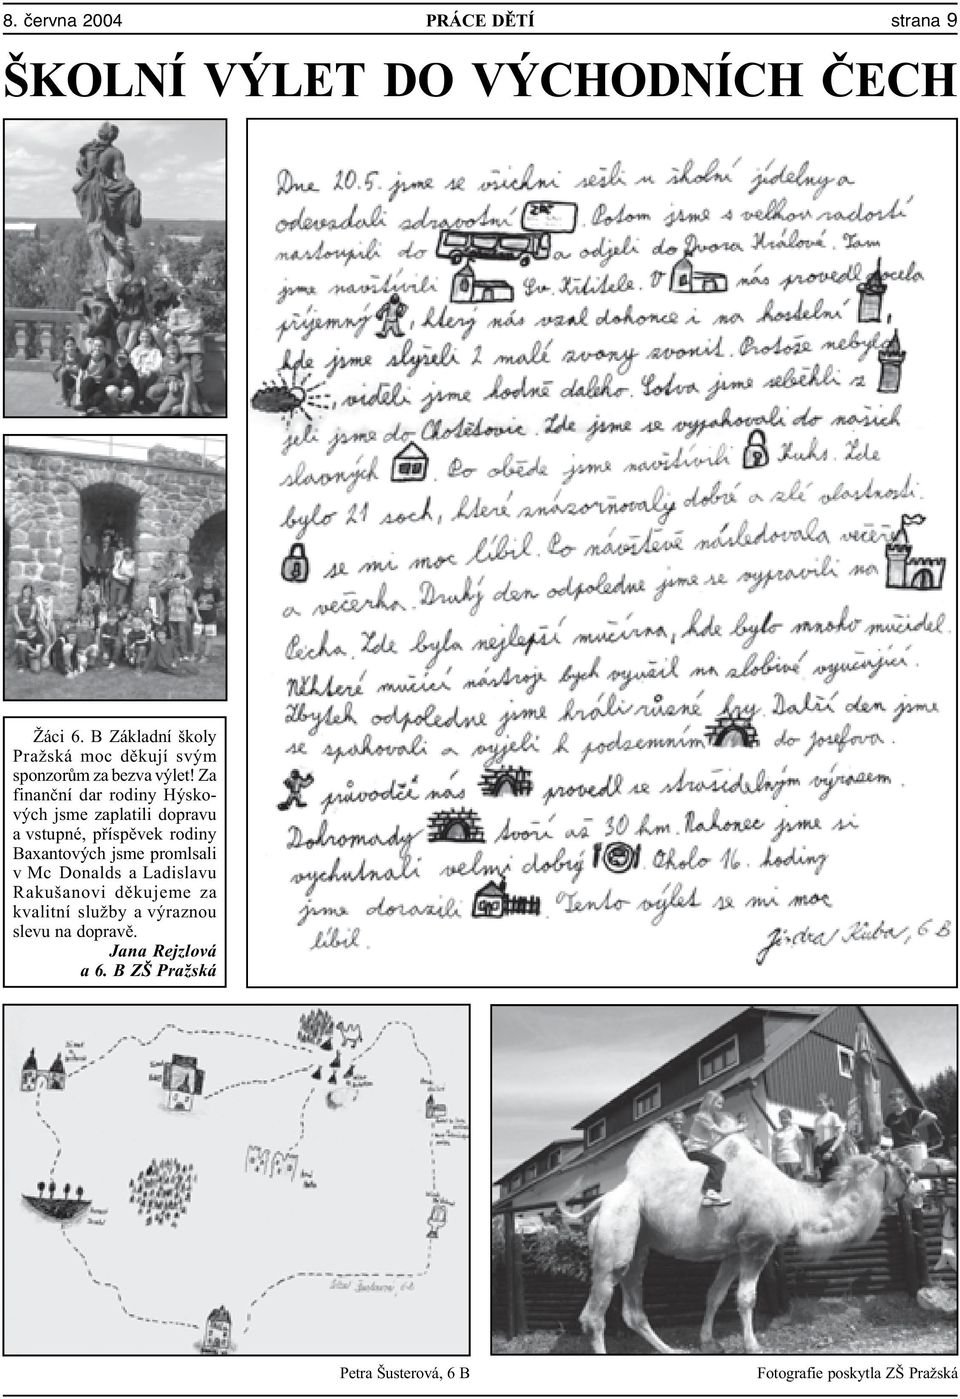 8. června 2004 PRÁCE DĚTÍ strana 9
ŠKOLNÍ VÝLET DO VÝCHODNÍCH ČECH
Dne 20.5. jsme se všichni sešli u školní jídelny a
odevzdali zdravotní . Potom jsme s velkou radostí
nastoupili do a odjeli do Dvora Králové. Tam
jsme navštívili Sv. Křtitele. V nás provedl docela
příjemný , který nás vzal dokonce i na kostelní ,
kde jsme slyšeli 2 malé zvony zvonit. Protože nebylo
, viděli jsme hodně daleko. Sotva jsme seběhli z
jeli jsme do Chotětovic. Zde jsme se vypakovali do našich
slavných . Po obědě jsme navštívili Kuks. Zde
bylo 21 soch, které znázorňovaly dobré a zlé vlastnosti.
se mi moc líbil. Po návštěvě následovala večeře
a večerka. Druhý den odpoledne jsme se vypravili na
Pecka. Zde byla nejlepší mučírna, kde bylo mnoho mučidel.
Některé mučící nástroje bych využil na zlobivé vyučující.
Zbytek odpoledne jsme hráli různé hry. Další den jsme
se spakovali a vyjeli k podzemním do Josefova.
průvodčí nás provedl se strašidelným výrazem.
Dohromady tvoří až 30 km. Nakonec jsme si
vychutnali velmi dobrý . Okolo 16. hodiny
jsme dorazili . Tento výlet se mi moc
líbil.
Jindra Kuba, 6 B
Žáci 6. B Základní školy
Pražská moc děkují svým
sponzorům za bezva výlet! Za
finanční dar rodiny Hýsko-
vých jsme zaplatili dopravu
a vstupné, příspěvek rodiny
Baxantových jsme promlsali
v Mc Donalds a Ladislavu
Rakušanovi děkujeme za
kvalitní služby a výraznou
slevu na dopravě.
Jana Rejzlová
a 6. B ZŠ Pražská
Petra Šusterová, 6 B
Fotografie poskytla ZŠ Pražská